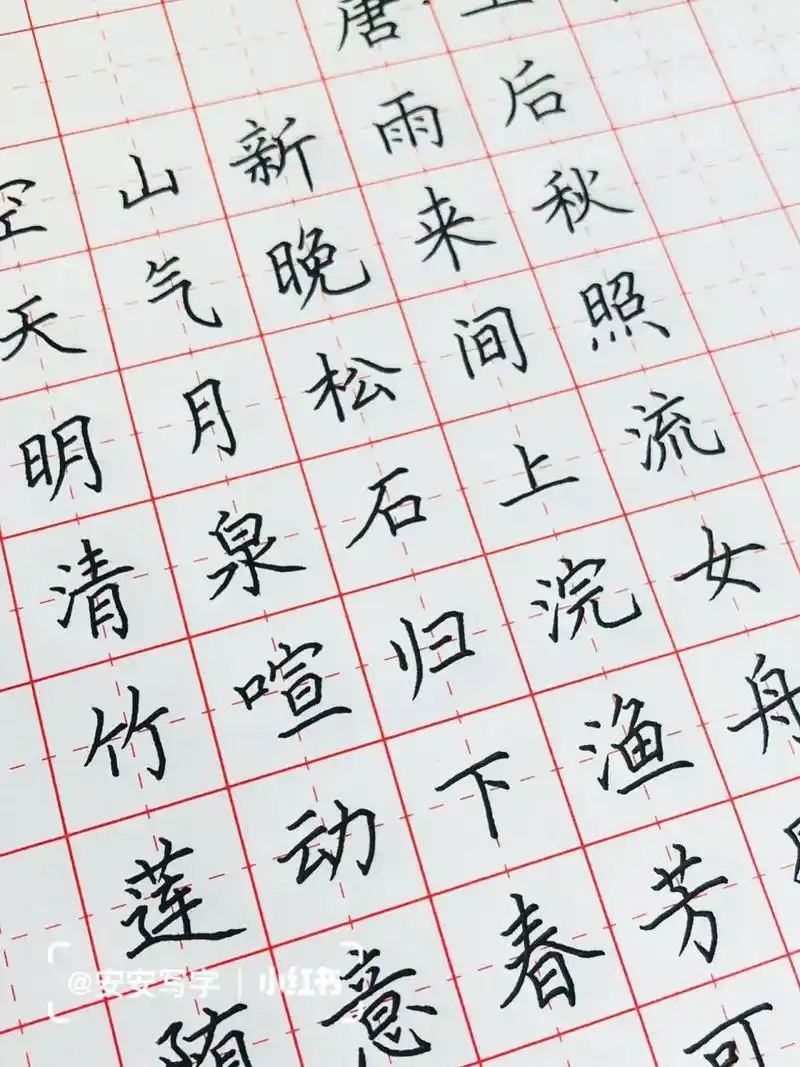 唐
空山新雨后
天气晚来秋
明月松间照
清泉石上流
竹喧归浣女
莲动下渔舟
意春芳
可
@安安写字 | 小红书